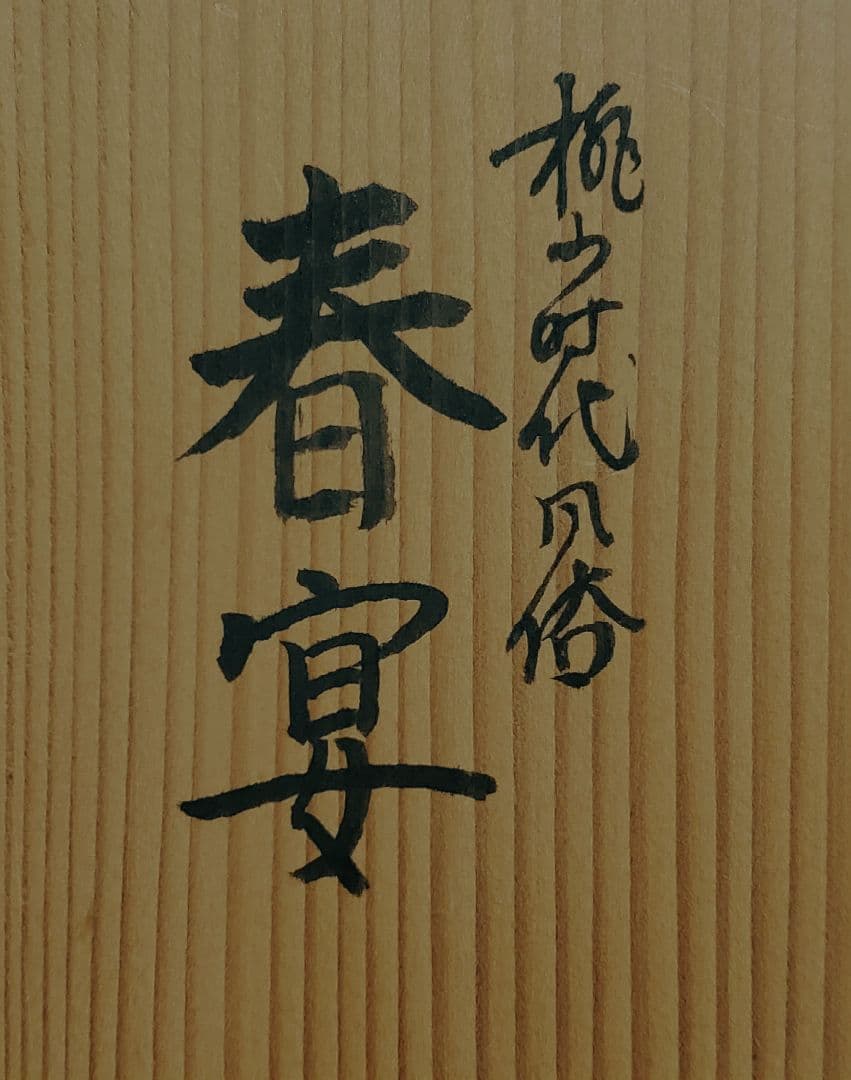 桃山時代風俗
春宴